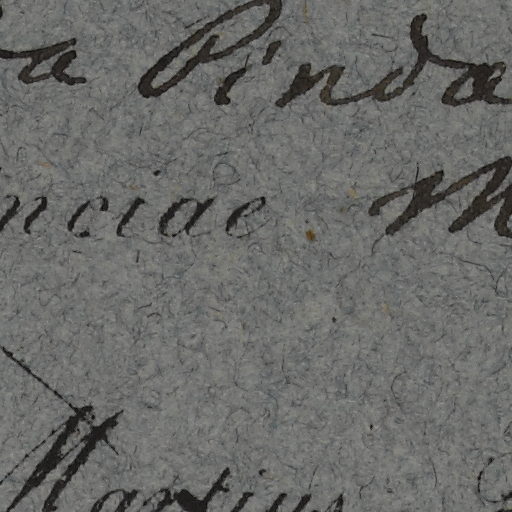 a Pinda
nciae M
Martius